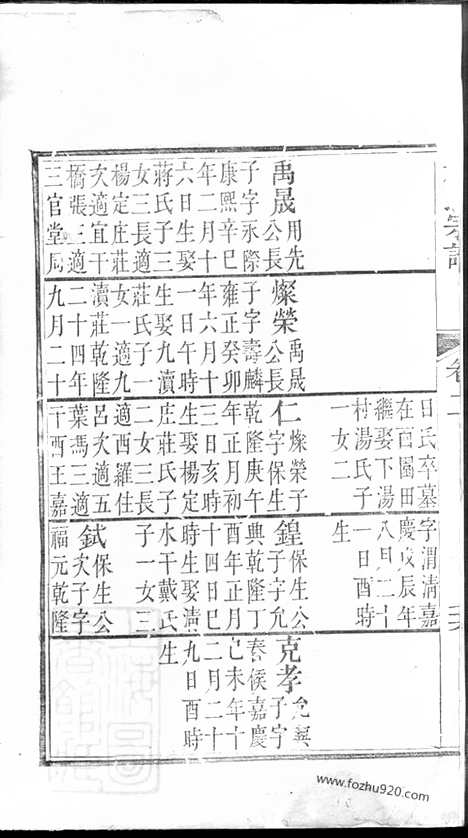 宗譜
卷二
禹晟 用先公長
子字永際
康熙辛巳
年二月十
六日生娶
蔣氏子三
女三長適
楊定庄莊
次適宜干
橋張三適
三官堂周
燦榮 禹晟公長
子字壽麟
雍正癸卯
年六月十
一日午時
生娶九瀆
莊氏子一
女一適九
瀆莊乾隆
二十四年
九月二十
日氏卒墓
在西園田
繼娶下湯
村湯氏子
一女二
仁 燦榮子字保生
乾隆庚午
年正月初
三日亥時
生娶楊定
庄莊氏子
二女三長
適西羅住
呂次適五
葉馮三適
干酉王嘉
字渭清嘉
慶戊辰年
八月二十
一日酉時
生
鍠 保生公子字允
典乾隆丁
酉年正月
十四日巳
時生娶淸
水干戴氏
子一女三
鉽 保生公次子字
福元乾隆
克孝 允典子字
春侯嘉慶
己未年十
二月二十
九日酉時
生
www.fozhu920.com